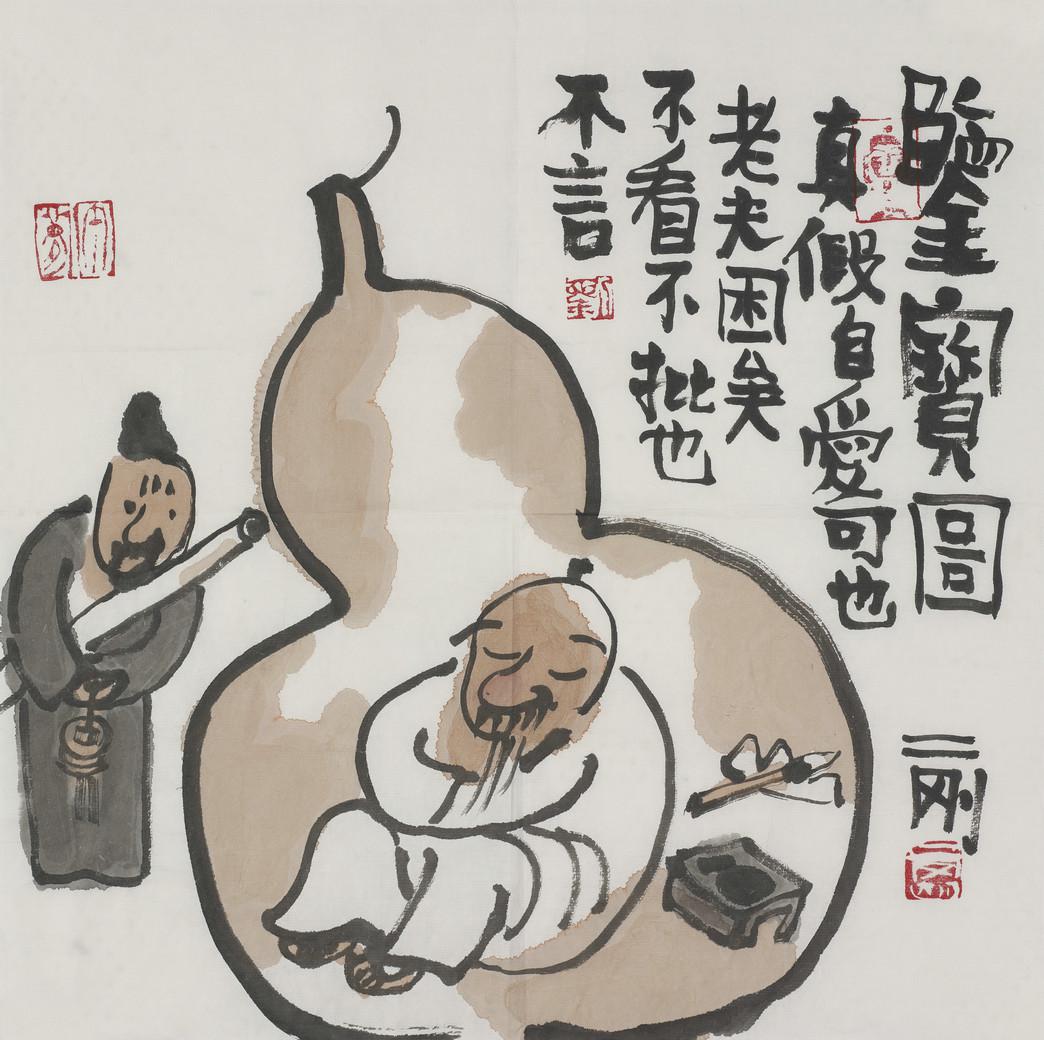 鑒寶圖
真假自愛可也
老夫困矣
不看不批也
不言
二刚
劉